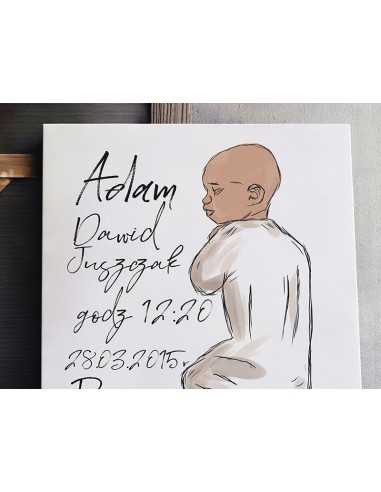 Adam
Dawid
Juszczak
godz 12:20
28.03.2015r